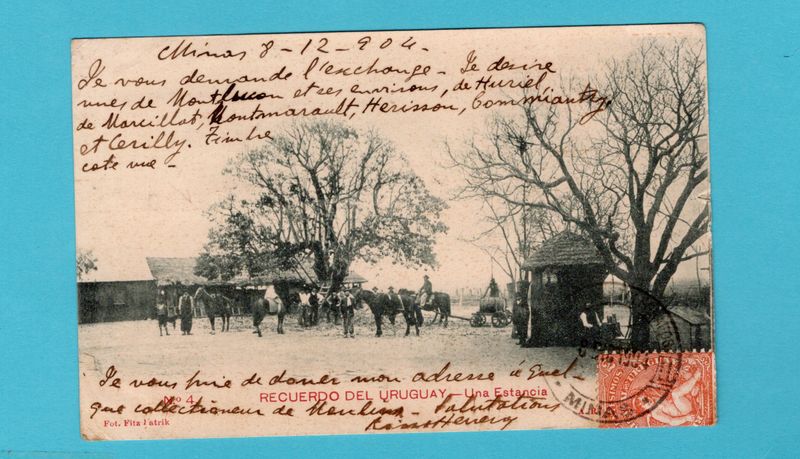 Minas 8-12-904-
Je vous demande l'exchange - Je desire
vues de Montlucon et ses environs, de Huriel,
de Marcillat, Montmarault, Herisson, Commentry,
et Cerilly. Timbre
cote vue -
Je vous prie de doner mon adresse à Quel-
No 4. RECUERDO DEL URUGUAY - Una Estancia
que collectioneur de Moulins - Salutations
Fot. Fitz Patrik
MINAS
URUGUAY